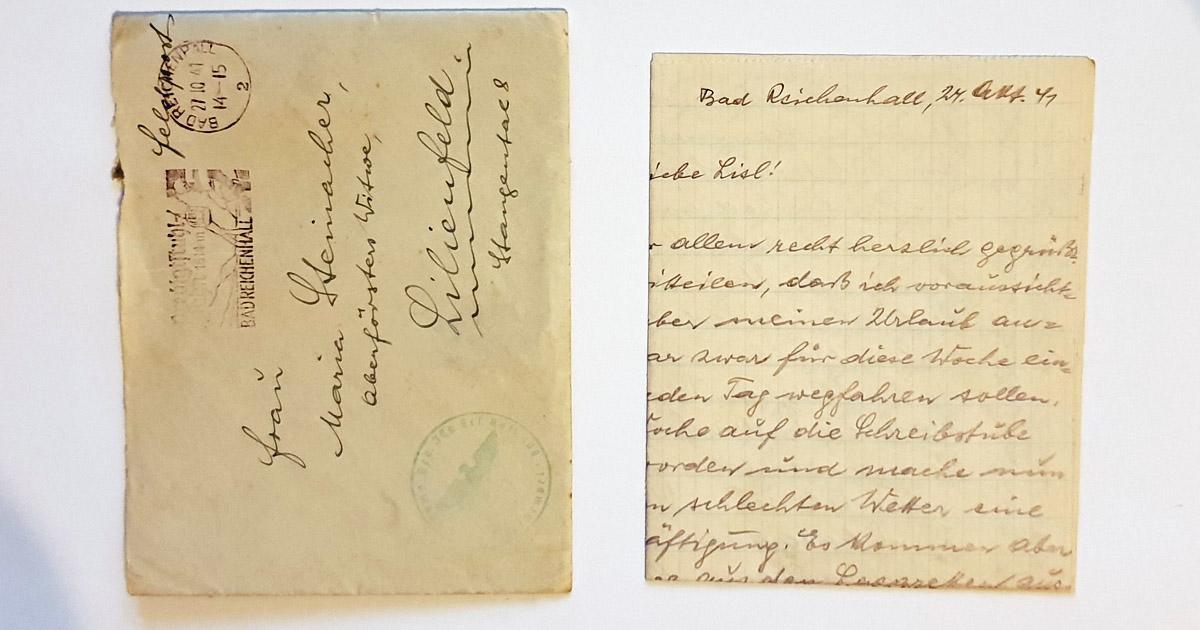 Feldpost
BAD REICHENHALL
27 10 41
14-15
2
BAD REICHENHALL
Frau
Maria Steinacher,
Oberförsters Witwe,
Lilienfeld.
Bad Reichenhall, 24. Okt. 41
iebe Lisl!
r allem recht herzlich gegrüßt.
itteilen, daß ich voraussicht=
ber meinen Urlaub an=
ar zwar für diese Woche ein=
eden Tag wegfahren sollen.
oche auf die Schreibstube
orden und mache nun
n schlechten Wetter eine
äftigung. Es kommen aber
aus den Lazaretten aus=